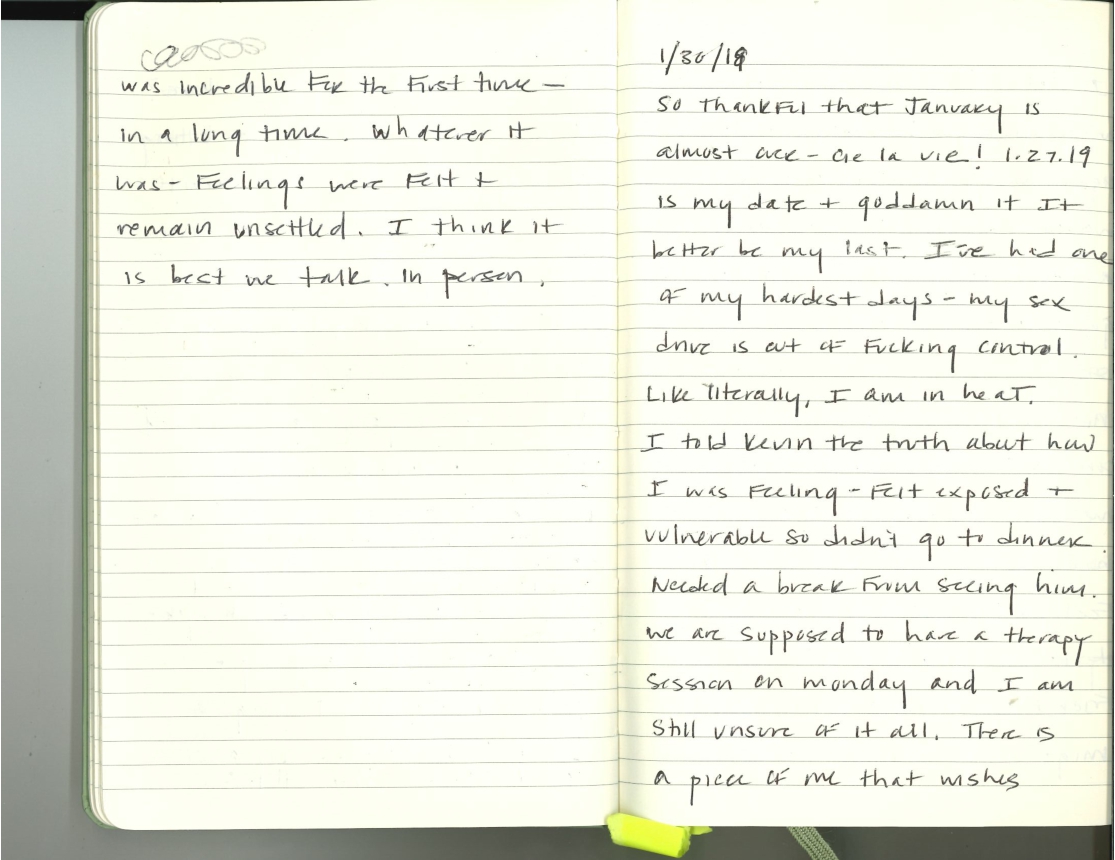 was incredible for the first time —
in a long time. Whatever it
was - Feelings were felt +
remain unsettled. I think it
is best we talk. In person.
1/30/19
So thankful that January is
almost over - cie la vie! 1.27.19
is my date + goddamn it It
better be my last. I've had one
of my hardest days - my sex
drive is out of fucking control.
Like literally, I am in heat.
I told Kevin the truth about how
I was feeling - felt exposed +
vulnerable so didn't go to dinner.
Needed a break from seeing him.
we are supposed to have a therapy
session on monday and I am
still unsure of it all. There is
a piece of me that wishes